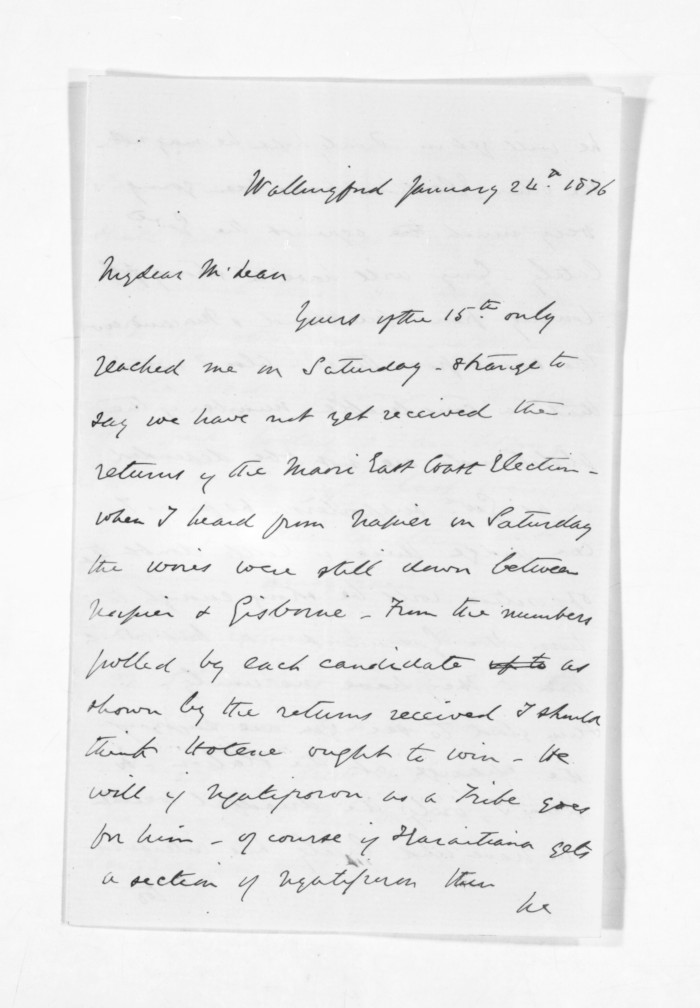 Wallingford January 24th. 1876
My dear McLean
Yours of the 15th. only
reached me on Saturday - strange to
say we have not yet received the
returns of the Maori East Coast Election -
when I heard from Napier on Saturday
the wires were still down between
Napier & Gisborne - From the numbers
polled by each candidate up to as
shown by the returns received I should
think Hotene ought to win - He
will if Ngatiporou as a Tribe goes
for him - of course if Karaitiana gets
a section of Ngatiporou then
he